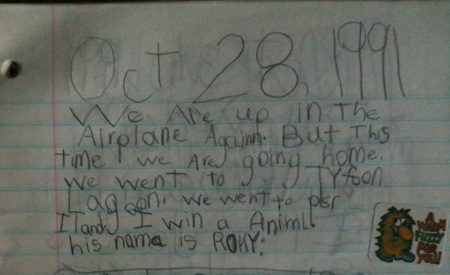 Oct 28, 1991
We Are up in The
Airplane Again. But This
time we are going home.
We went to Tyfoon
Lagoon, we went to
I win a Animl.
his name is ROKY.